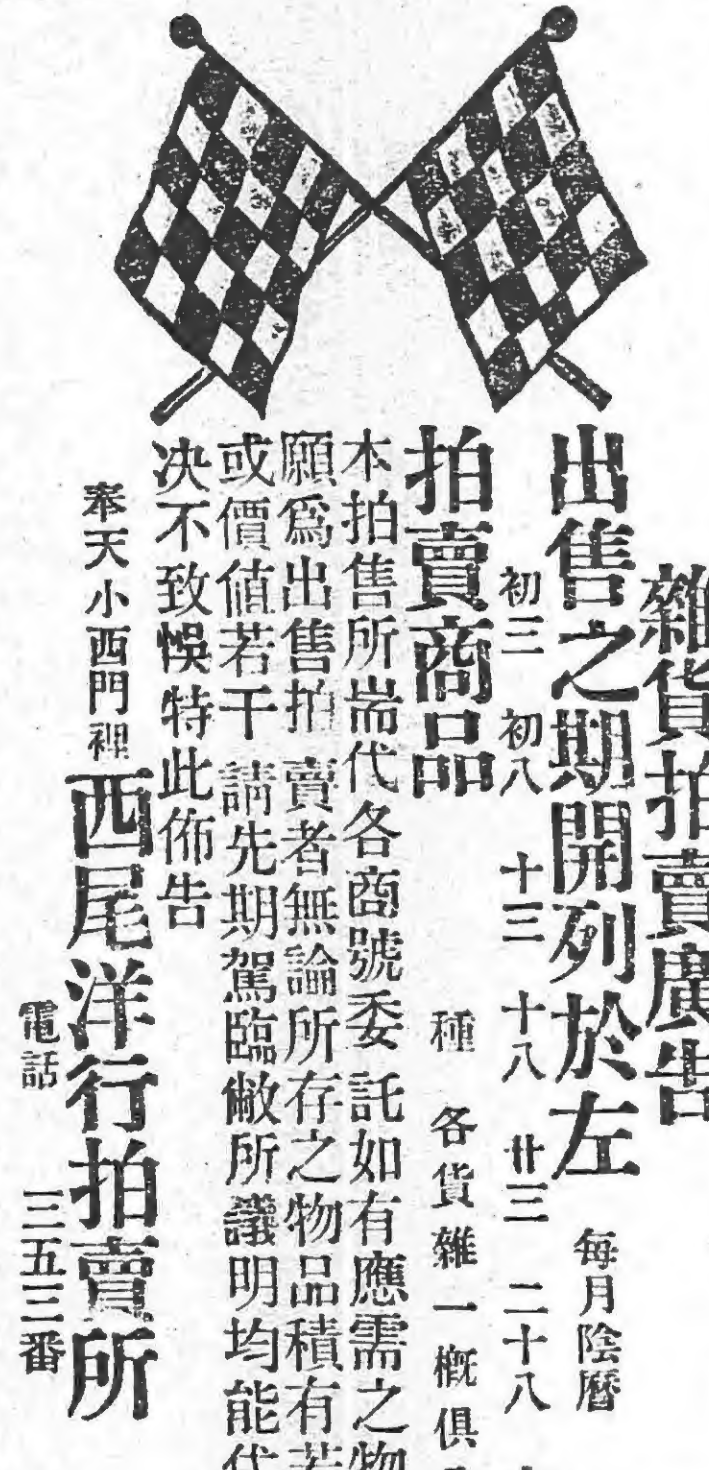 雜貨拍賣廣告
出售之期開列於左 每月陰曆
初三 初八 十三 十八 廿三 二十八
拍賣商品 種 各貨雜一概俱
本拍售所耑代各商號委託如有應需之物
願爲出售拍賣者無論所存之物品積有若
或價値若干請先期駕臨敝所議明均能代
决不致悞特此佈告
奉天小西門裡 西尾洋行拍賣所
電話 三五三番